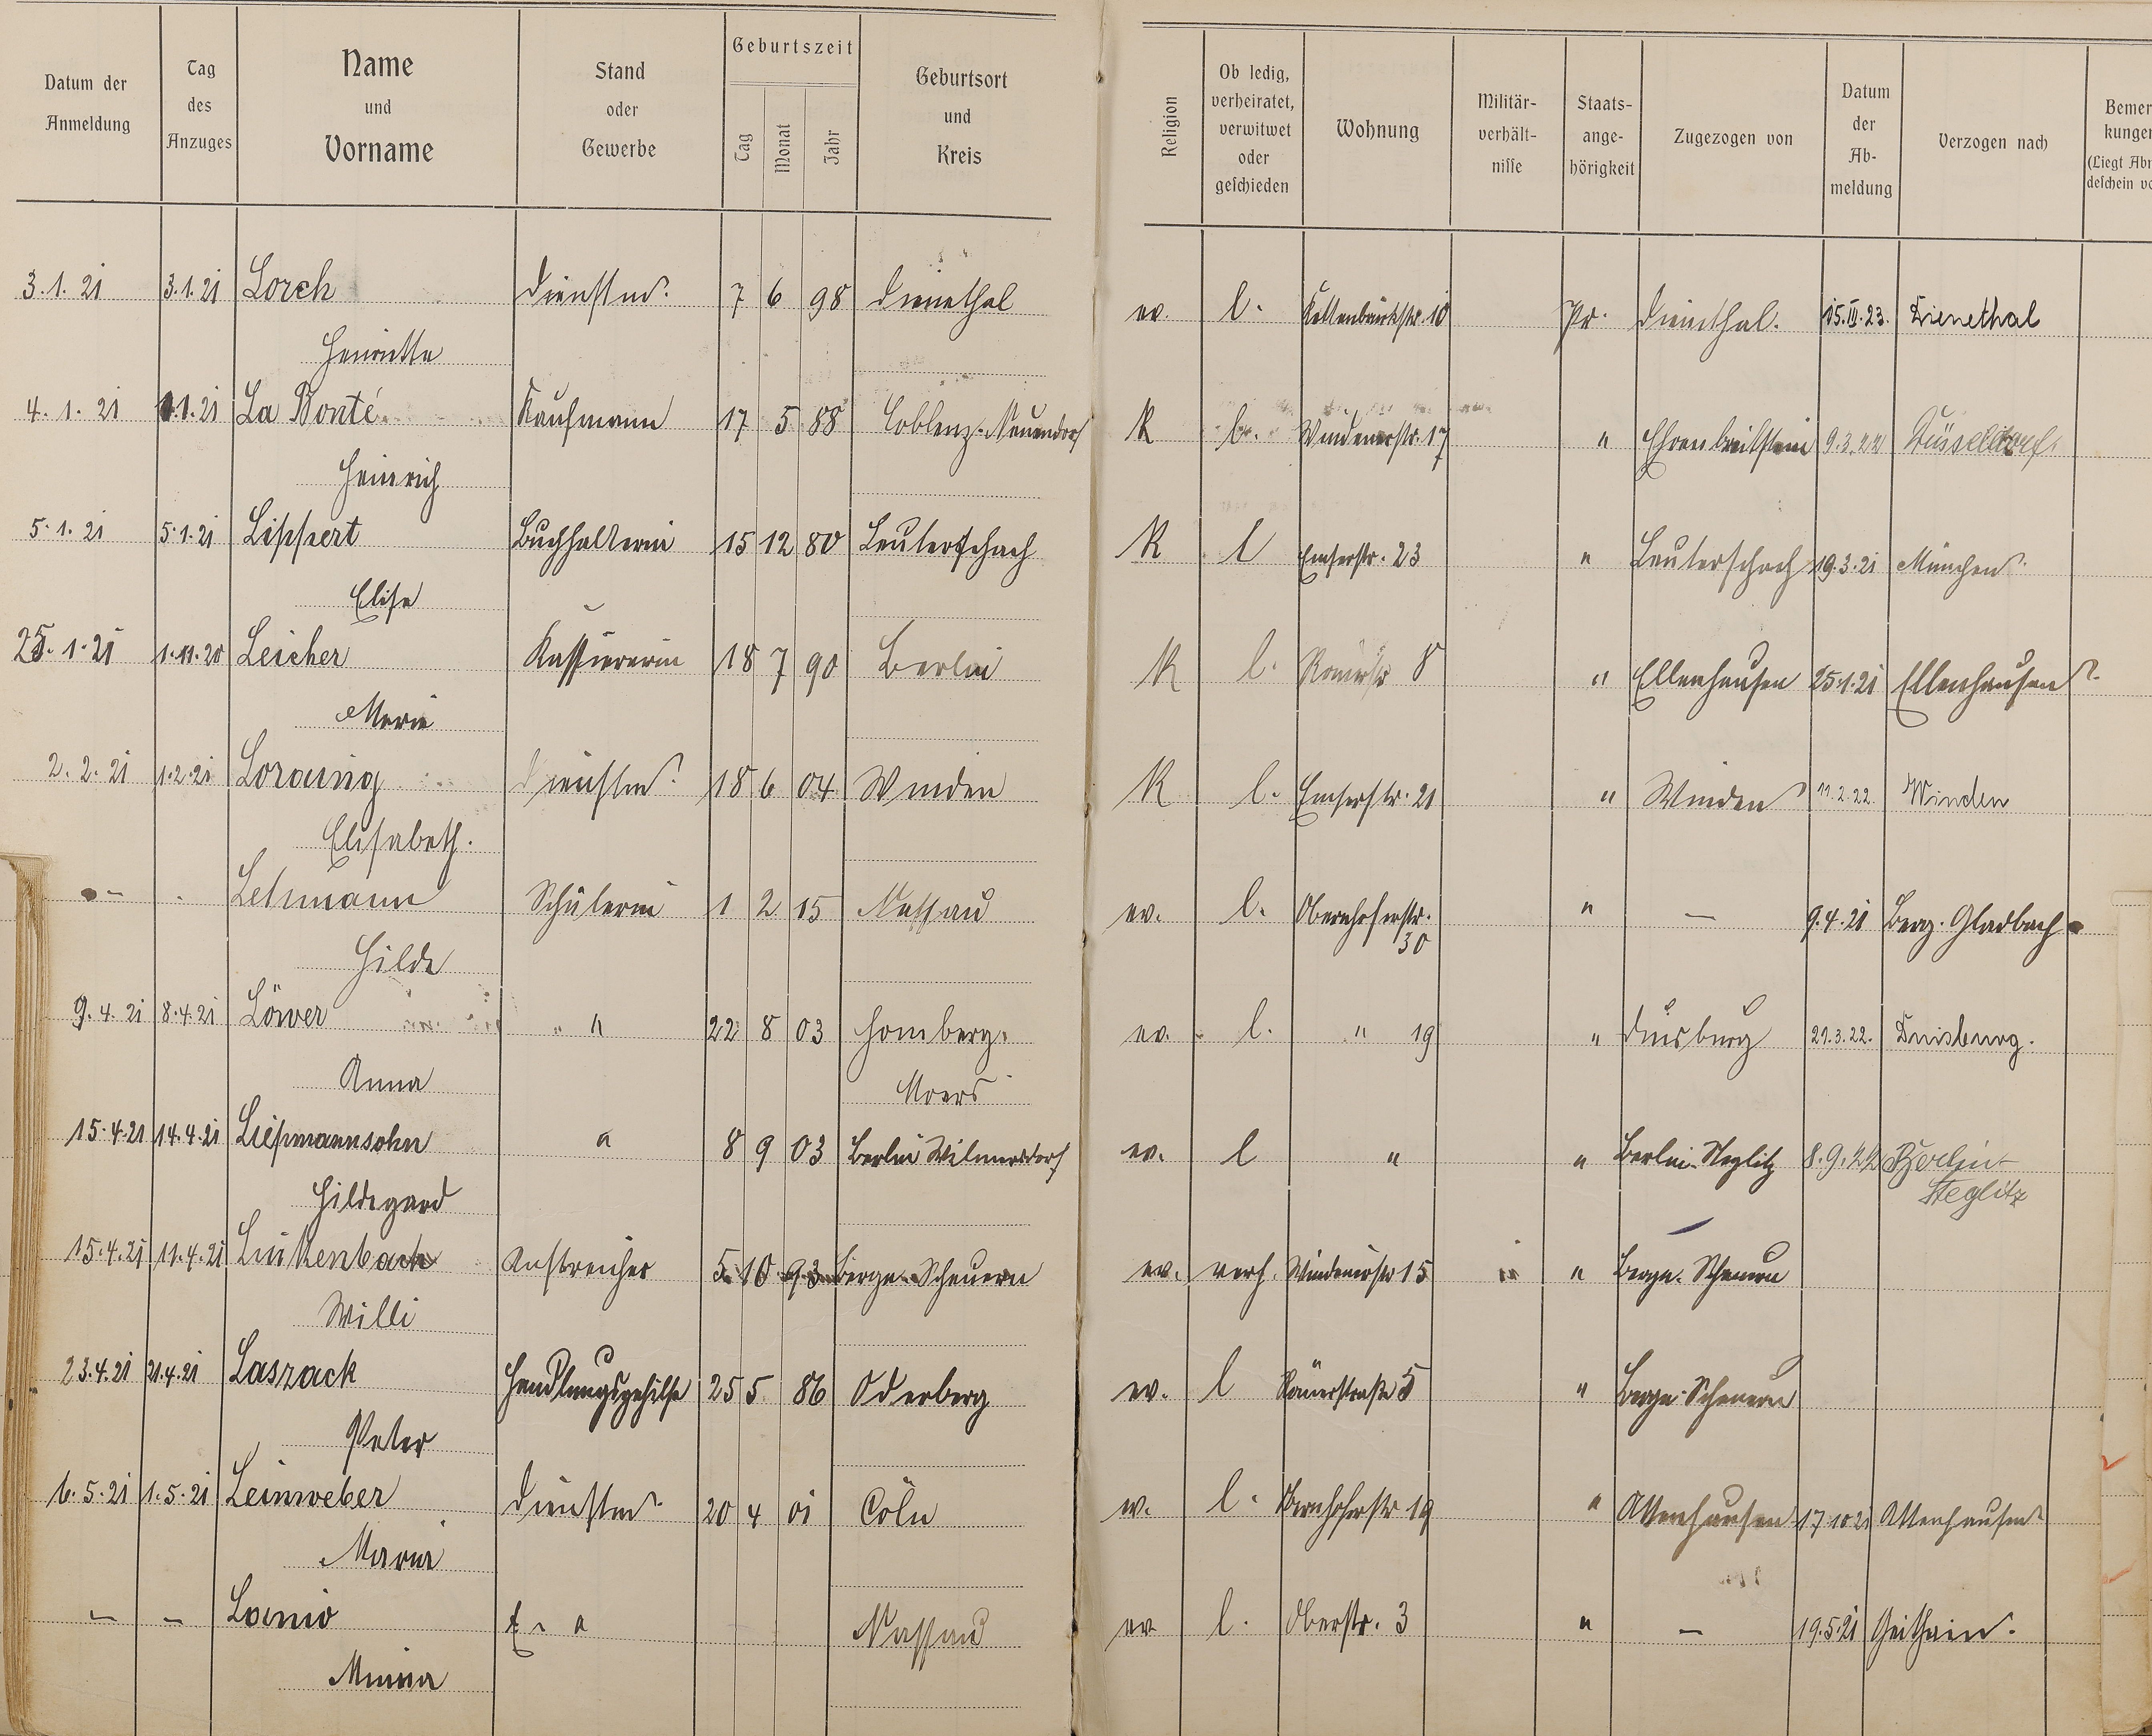 Datum der Anmeldung | Tag des Anzuges | Name und Vorname | Stand oder Gewerbe | Geburtszeit | Tag | Monat | Jahr | Geburtsort und Kreis | Religion | Ob ledig, verheiratet, verwitwet oder geschieden | Wohnung | Militär-verhält-nisse | Staats-ange-hörigkeit | Zugezogen von | Datum der Ab-meldung | Verzogen nach | Bemer-kungen
3.1.21 | 3.1.21 | Lorch | Dienstm. | 7 | 6 | 98 | Dienethal | ev. | l. | Kaltenbachstr. 10 | Pr. | Dienethal. | 15.III.23. | Dienethal
Henriette
4.1.21 | 1.1.21 | La Bonté | Kaufmann | 17 | 5 | 88 | Coblenz-Neuendorf | K | Windenerstr. 17 | " | Ehrenbreitstein | 9.3.22 | Düsseldorf.
Heinrich
5.1.21 | 5.1.21 | Lippert | Buchhalterin | 15 | 12 | 80 | Leuterschach | K | l | Emserstr. 23 | " | Leuterschach | 19.3.21 | München
Elise
25.1.21 | 1.11.20 | Leicher | Kassiererin | 18 | 7 | 90 | Berlin | K | l. | Römerstr 8 | " | Ellenhausen | 25.1.21 | Ellenhausen
Marie
2.2.21 | 1.2.21 | Loraing | Dienstm. | 18 | 6 | 04 | Winden | K | l. | Emserstr. 21 | " | Winden | 11.2.22. | Winden
Elisabeth.
– | . | Lehmann | Schülerin | 1 | 2 | 15 | Nassau | ev. | l. | Obernhoferstr. 30 | " | – | 9.4.21 | Berg. Gladbach
Hilde
9.4.21 | 8.4.21 | Löwer | " " | 22 | 8 | 03 | Homberg. | ev. | l. | " 19 | " | Duisburg | 21.3.22. | Duisburg.
Anna | Moers
15.4.21 | 14.4.21 | Liepmannsohn | " | 8 | 9 | 03 | Berlin Wilmersdorf | ev. | l | " | " | Berlin-Steglitz | 8.9.22 | Berlin-
Hildegard | Steglitz
15.4.21 | 11.4.21 | Lutkenbach | Anstreicher | 5. | 10 | 93 | Bergn.-Scheuern | ev. | verh. | Windenerstr 15 | " | Bergn.-Scheuern
Willi
23.4.21 | 21.4.21 | Laszack | Handlungsgehilfe | 25 | 5 | 86 | Oderberg | ev. | l | Römerstraße 5 | " | Bergn-Scheuern
Peter
6.5.21 | 1.5.21 | Leinweber | Dienstm. | 20 | 4 | 01 | Cöln | ev. | l. | Obernhoferstr 19 | " | Attenhausen | 17 10 21 | Attenhausen
Maria
– | – | Lanio | Nassau | ev | l. | Oberstr. 3 | " | – | 19.5.21 | Geithain.
Minna